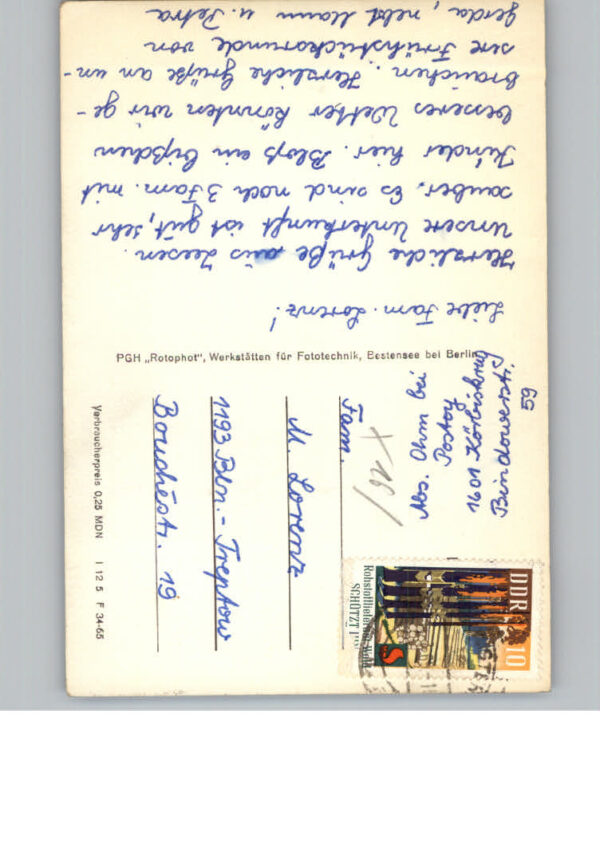 Liebe Fam. Lorenz!
Herzliche Grüße aus Zeesen.
Unsere Unterkunft ist gut, sehr
sauber. Es sind noch 3 Fam. mit
Kinder hier. Bloß ein bißchen
besseres Wetter könnten wir ge-
brauchen. Herzliche Grüße an un-
sere Frühstücksrunde von
Gerda, nebst Mann u. Petra
PGH „Rotophot", Werkstätten für Fototechnik, Bestensee bei Berlin
Abs. Ohm bei
1601 Körbiskrug
59
Fam.
M. Lorenz
1193 Bln.-Treptow
Bouchéstr. 19
DDR
10
Rohstofflieferant Wald
SCHÜTZT IHN
Verbraucherpreis 0,25 MDN I 12 5 F 34-65